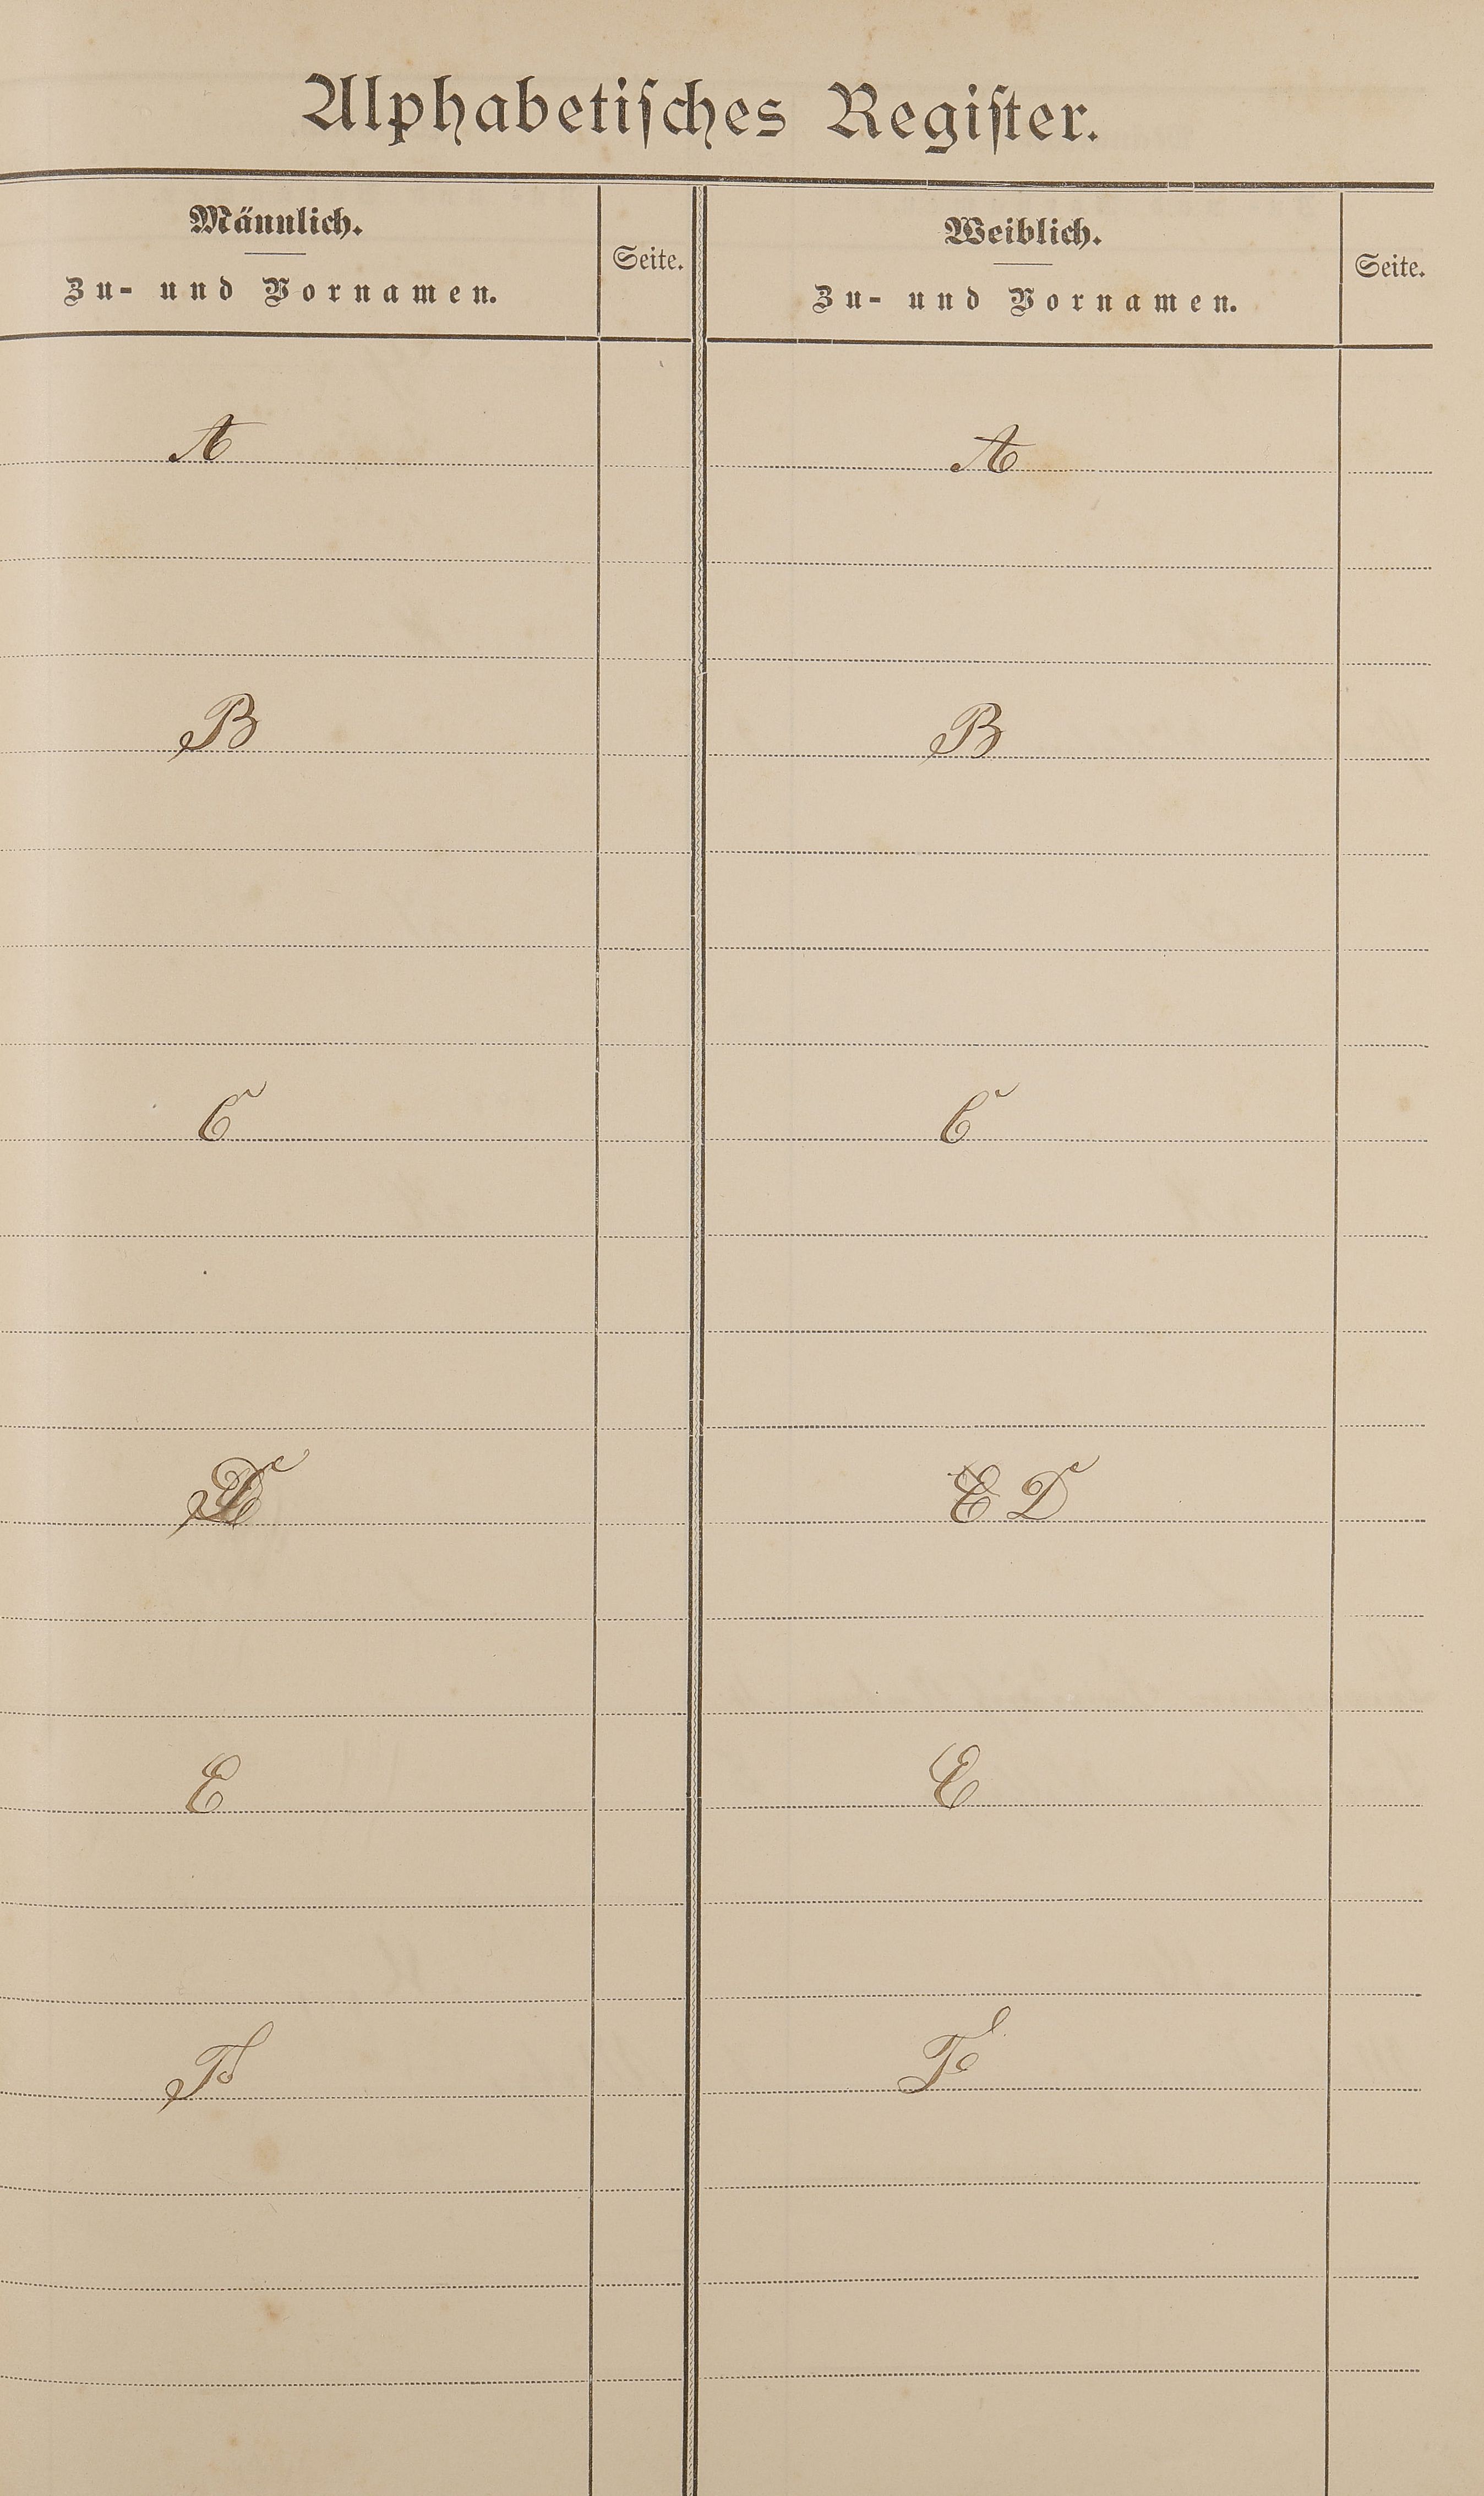 Alphabetiſches Regiſter.
Männlich. Weiblich.
Seite. Seite.
Zu- und Vornamen. Zu- und Vornamen.
A A
B B
C C
D E D
E E
F F